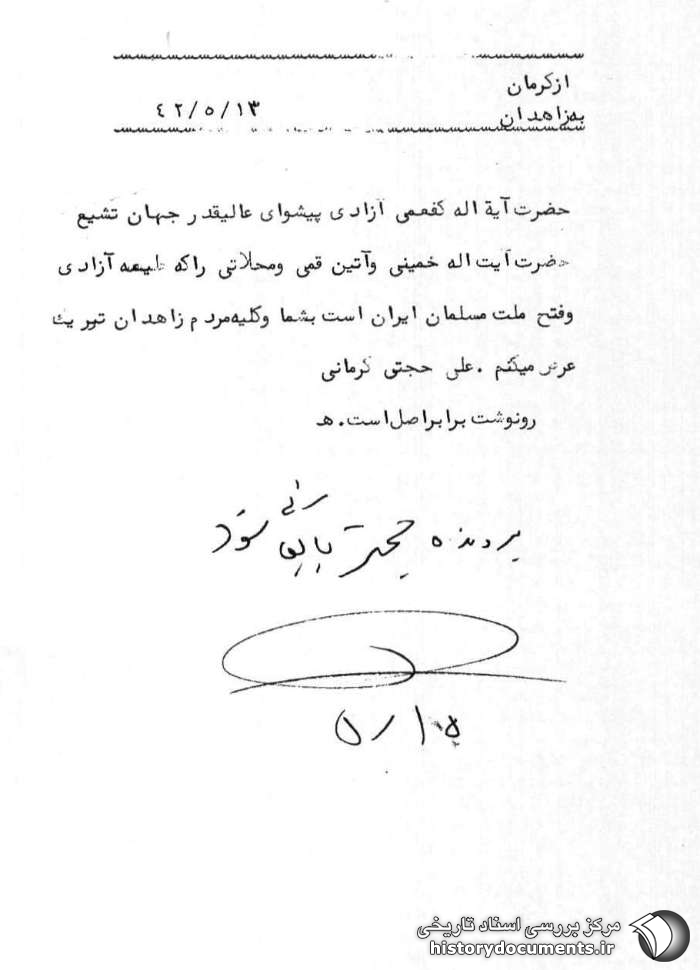 از کرمان
به زاهدان
٤٢/٥/١٣
حضرت آیة اله کفعمی آزادی پیشوای عالیقدر جهان تشیع
حضرت آیت اله خمینی وآتین قمی ومحلاتی راکه طلیعه آزادی
وفتح ملت مسلمان ایران است بشما وکلیه مردم زاهدان تبریک
عرض میکنم . علی حجتی کرمانی
رونوشت برابراصل است . هـ
پرونده حجتی بایگانی شود
۵/۱۵
مرکز بررسی اسناد تاریخی
historydocuments.ir